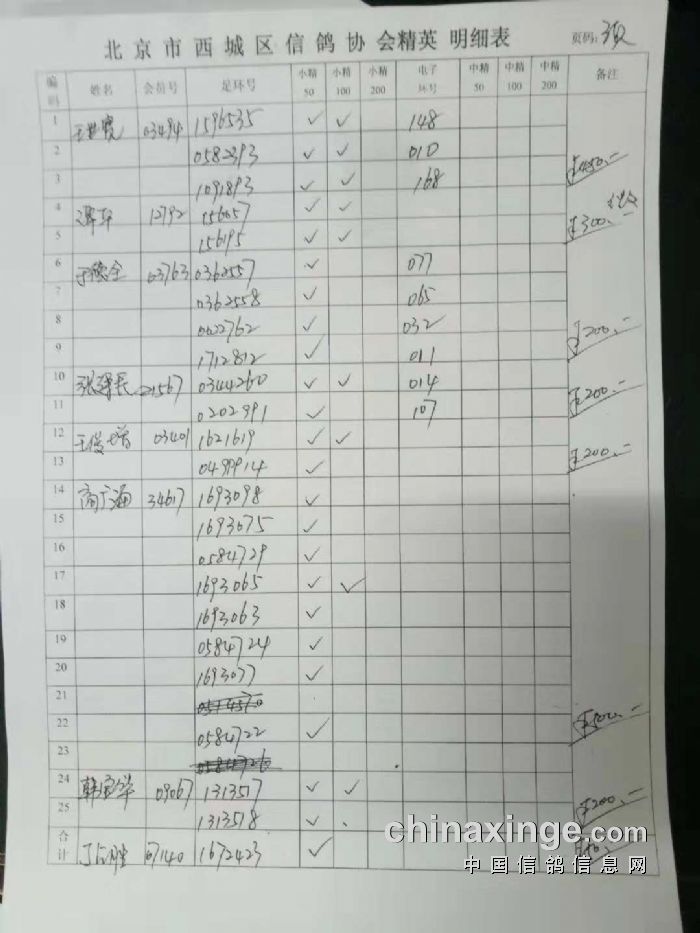 北京市西城区信鸽协会精英 明细表
页码:
编码 姓名 会员号 足环号 小精50 小精100 小精200 电子环号 中精50 中精100 中精200 备注
1 03494 1596535 ✓ ✓ 148
2 0582393 ✓ ✓ 010
3 1091893 ✓ ✓ 168 ¥450.-
4 12792 156057 ✓ ✓
5 156195 ✓ ✓ ¥300.-
6 于德全 03763 0362557 ✓ 077
7 0362558 ✓ 065
8 0022762 ✓ 032 ¥200.-
9 1712812 ✓ 011
10 张建长 21567 0344260 ✓ ✓ 014
11 0202991 ✓ 107 ¥200.-
12 王俊增 03401 1621619 ✓ ✓
13 0499914 ✓ ¥200.-
14 商广海 34617 1693098 ✓
15 1693075 ✓
16 0584729 ✓
17 1693065 ✓ ✓
18 1693063 ✓
19 0584724 ✓
20 1693077 ✓
21
22 0584722 ✓ ¥500.-
23
24 韩宝华 09067 1313517 ✓ ✓
25 1313518 ✓ ¥200.-
合计 67140 1672423 ✓
chinaxinge.com
中国信鸽信息网